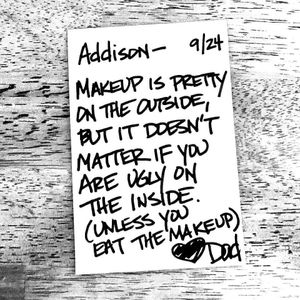 Addison— 9/24
MAKEUP IS PRETTY
ON THE OUTSIDE,
BUT IT DOESN'T
MATTER IF YOU
ARE UGLY ON
THE INSIDE.
(UNLESS YOU
EAT THE MAKEUP)
♥ Dad